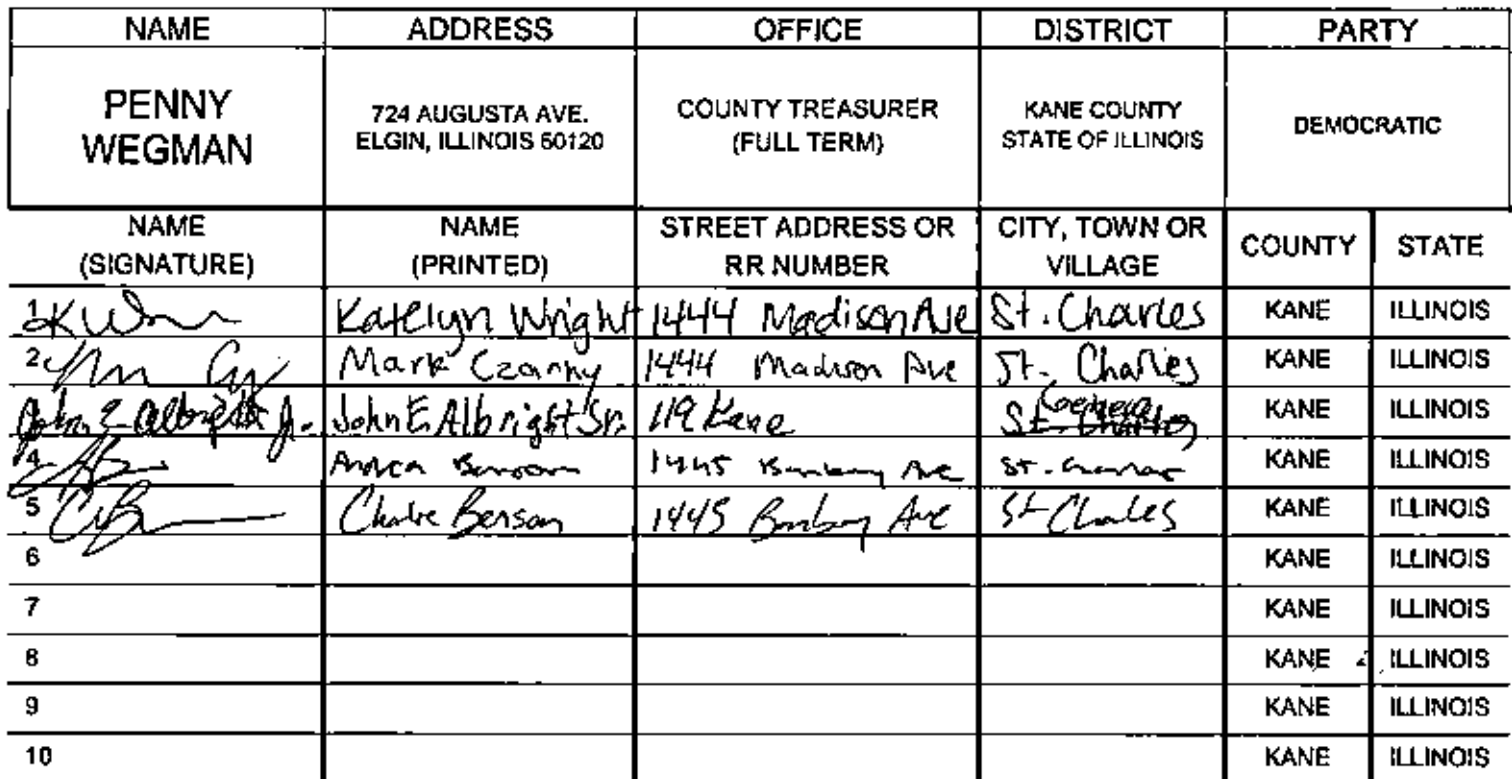 NAME ADDRESS OFFICE DISTRICT PARTY
PENNY WEGMAN 724 AUGUSTA AVE. ELGIN, ILLINOIS 60120 COUNTY TREASURER (FULL TERM) KANE COUNTY STATE OF ILLINOIS DEMOCRATIC
NAME (SIGNATURE) NAME (PRINTED) STREET ADDRESS OR RR NUMBER CITY, TOWN OR VILLAGE COUNTY STATE
1 Katelyn Wright 1444 Madison Ave St. Charles KANE ILLINOIS
2 Mark Czarny 1444 Madison Ave St. Charles KANE ILLINOIS
John E Albright Jr. John E Albright Sr. 119 Kane Geneva St. Charles KANE ILLINOIS
4 1445 Ave St. KANE ILLINOIS
5 Charlie Benson 1445 Ave St Charles KANE ILLINOIS
6 KANE ILLINOIS
7 KANE ILLINOIS
8 KANE ILLINOIS
9 KANE ILLINOIS
10 KANE ILLINOIS